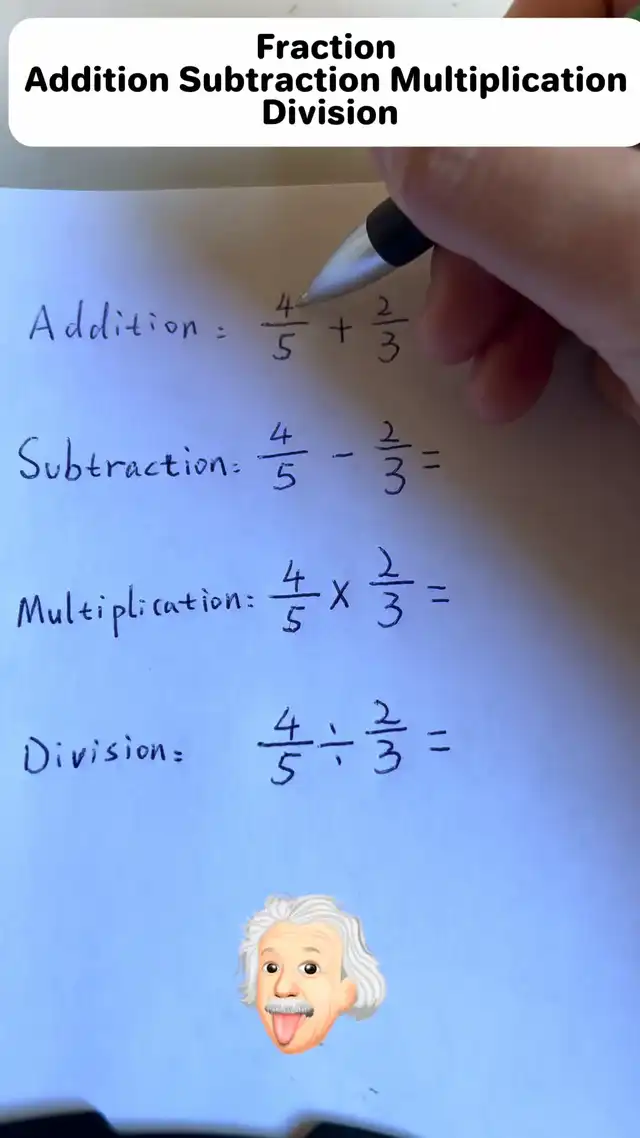 Fraction
Addition Subtraction Multiplication
Division
Addition: 4/5 + 2/3
Subtraction: 4/5 - 2/3 =
Multiplication: 4/5 × 2/3 =
Division: 4/5 ÷ 2/3 =